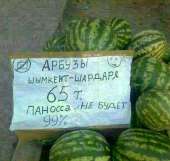 АРБУЗЫ
ШЫМКЕНТ-ШАРДАРА
65 т.
ПАНОССА НЕ БУДЕТ
99%